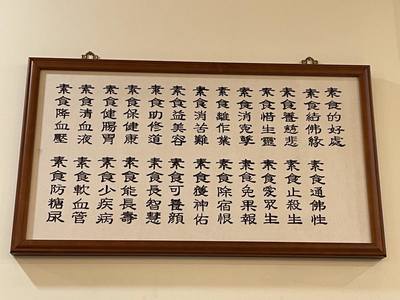 素食的好處
素食結佛緣
素食養慈悲
素食惜生靈
素食消冤孽
素食離作業
素食消苦難
素食益美容
素食助修道
素食保健康
素食健腸胃
素食清血液
素食降血壓
素食通佛性
素食止殺生
素食愛眾生
素食免果報
素食除宿恨
素食獲神佑
素食可養顏
素食長智慧
素食能長壽
素食少疾病
素食軟血管
素食防糖尿